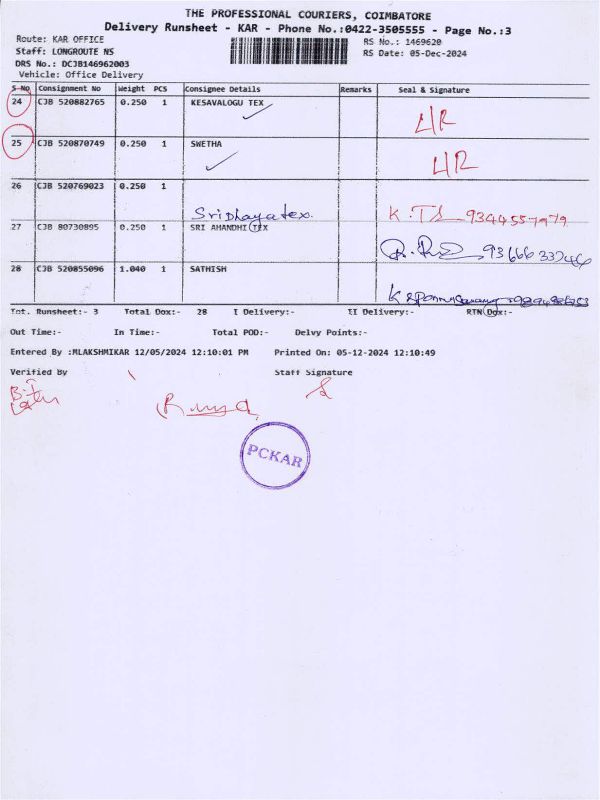 THE PROFESSIONAL COURIERS, COIMBATORE
Delivery Runsheet - KAR - Phone No.:0422-3505555 - Page No.:3
Route: KAR OFFICE RS No.: 1469620
Staff: LONGROUTE NS RS Date: 05-Dec-2024
DRS No.: DCJB146962003
Vehicle: Office Delivery
S No Consignment No Weight PCS Consignee Details Remarks Seal & Signature
24 CJB 520882765 0.250 1 KESAVALOGU TEX
L/R
25 CJB 520870749 0.250 1 SWETHA
L/R
26 CJB 520769023 0.250 1
Sridhaya tex. 9344557979
27 CJB 80730895 0.250 1 SRI AHANDHI TEX
28 CJB 520855096 1.040 1 SATHISH
Tot. Runsheet:- 3 Total Dox:- 28 I Delivery:- II Delivery:- RTN Dox:-
Out Time:- In Time:- Total POD:- Delvy Points:-
Entered By :MLAKSHMIKAR 12/05/2024 12:10:01 PM Printed On: 05-12-2024 12:10:49
Verified By Staff Signature
PCKAR